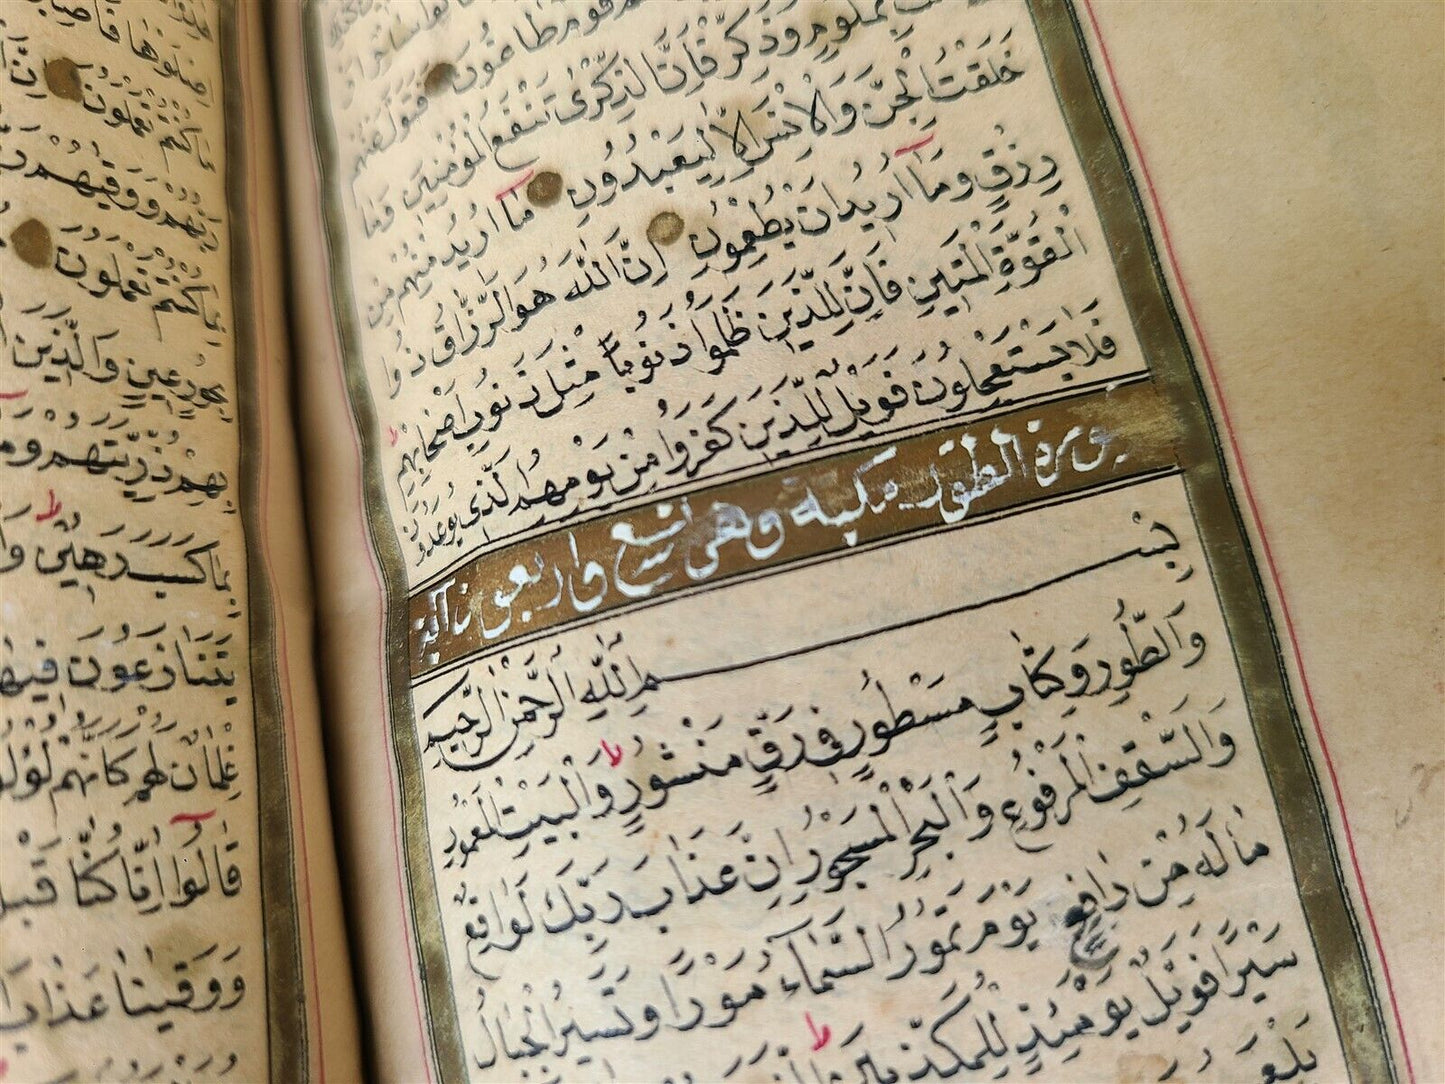 قَوْمٌ طَاغُونَ فَتَوَلَّ عَنْهُمْ
بِمَلُومٍ وَذَكِّرْ فَاِنَّ الذِّكْرٰى تَنْفَعُ الْمُؤْمِنِينَ وَمَا
خَلَقْتُ الْجِنَّ وَالْاِنْسَ اِلَّا لِيَعْبُدُونِ مَآ اُرِيدُ مِنْهُمْ مِنْ
رِزْقٍ وَمَآ اُرِيدُ اَنْ يُطْعِمُونِ اِنَّ اللّٰهَ هُوَ الرَّزَّاقُ ذُوا
الْقُوَّةِ الْمَتِينِ فَاِنَّ لِلَّذِينَ ظَلَمُوا ذَنُوبًا مِثْلَ ذَنُوبِ اَصْحَابِهِمْ
فَلَا يَسْتَعْجِلُونَ فَوَيْلٌ لِلَّذِينَ كَفَرُوا مِنْ يَوْمِهِمُ الَّذِي يُوعَدُونَ
سورة الطور مكية وهى تسع واربعون اية
بِسْمِ اللّٰهِ الرَّحْمٰنِ الرَّحِيمِ
وَالطُّورِ وَكِتَابٍ مَسْطُورٍ فِى رَقٍّ مَنْشُورٍ وَالْبَيْتِ الْمَعْمُورِ
وَالسَّقْفِ الْمَرْفُوعِ وَالْبَحْرِ الْمَسْجُورِ اِنَّ عَذَابَ رَبِّكَ لَوَاقِعٌ
مَا لَهُ مِنْ دَافِعٍ يَوْمَ تَمُورُ السَّمَآءُ مَوْرًا وَتَسِيرُ الْجِبَالُ
سَيْرًا فَوَيْلٌ يَوْمَئِذٍ لِلْمُكَذِّبِينَ
كُنْتُمْ تَعْمَلُونَ اِنَّ
رَبُّهُمْ وَوَقٰيهُمْ
كُنْتُمْ تَعْمَلُونَ
بِحُورٍ عِينٍ وَالَّذِينَ
بِهِمْ ذُرِّيَّتَهُمْ
بِمَا كَسَبَ رَهِينٌ
يَتَنَازَعُونَ فِيهَا
غِلْمَانٌ لَهُمْ كَاَنَّهُمْ لُؤْلُؤٌ
قَالُوا اِنَّا كُنَّا قَبْلُ
وَوَقٰينَا عَذَابَ